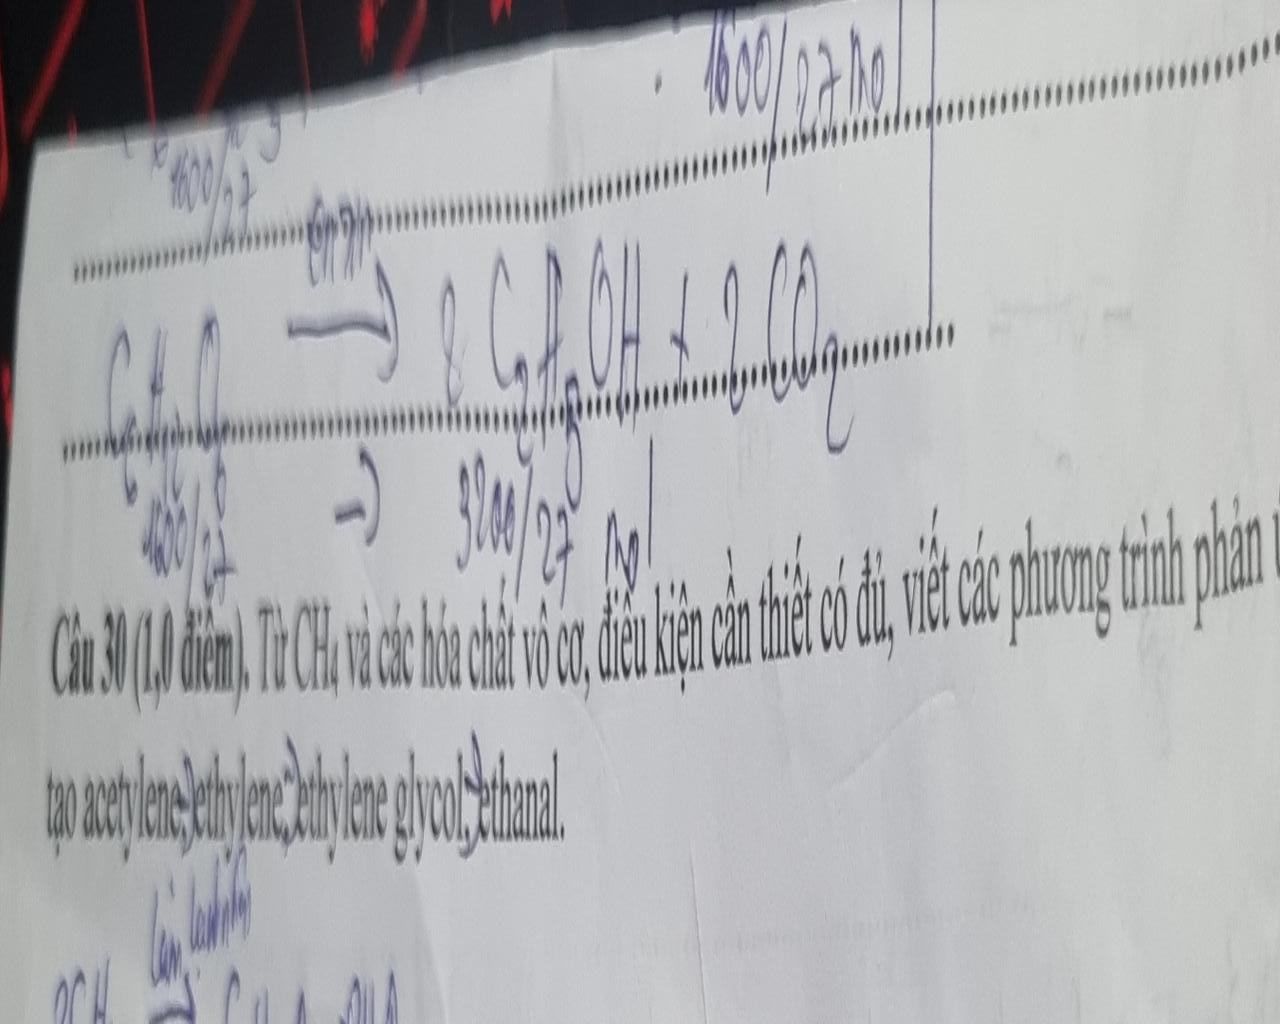 1600/27 mol
1600/27
enzim
C6H12O6 → 2 C2H5OH + 2 CO2
1600/27 → 3200/27 mol
Câu 30 (1,0 điểm). Từ CH4 và các hóa chất vô cơ, điều kiện cần thiết có đủ, viết các phương trình phản
tạo acetylene, ethylene, ethylene glycol, ethanal.
làm lạnh